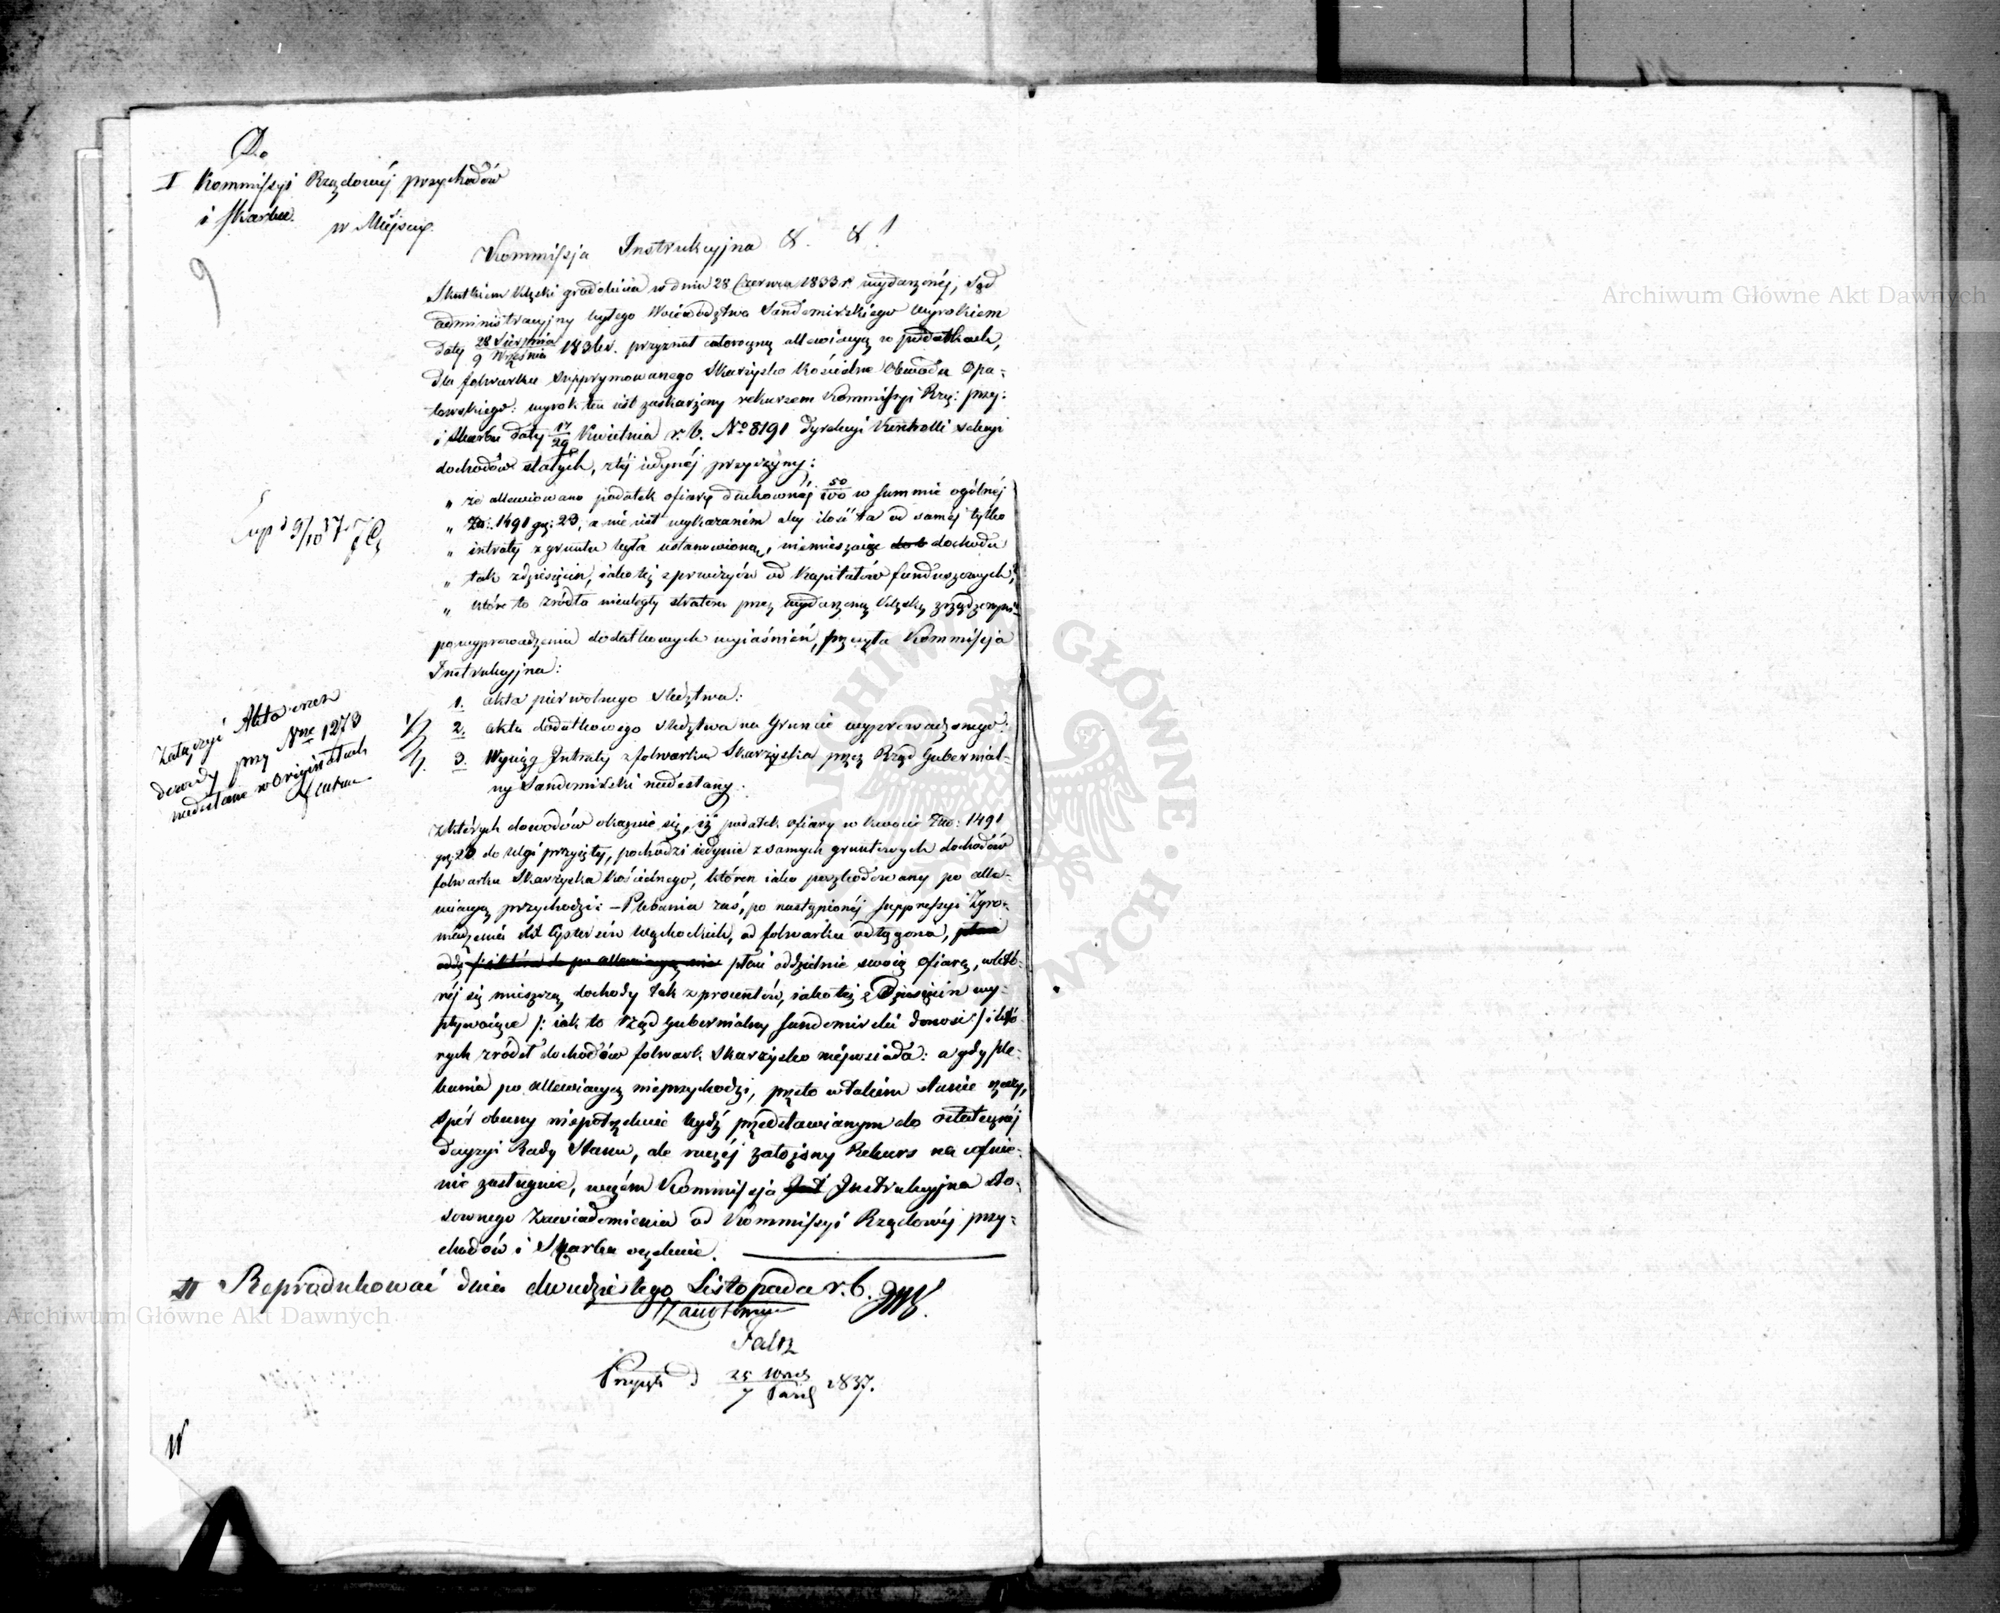 Do
I Kommissyi Rządowéj przychodów
i Skarbu.
w Miejscu.
9
Kommissja Instrukcyjna & &!
Skutkiem klęski gradobicia w dniu 28 Czerwca 1833 r. wydarzonéj, Sąd
administracyjny byłego Woiewództwa Sandomirskiego wyrokiem
daty 28 Sierpnia / 9 Września 1836 r. przyznał całoroczną allewiacyą w podatkach,
dla folwarku supprymowanego Skarzysko Kościelne Obwodu Opa-
towskiego: wyrok ten iest zaskarżony rekursem Kommissyi Rzą: przy:
i Skarbu daty 17/29 Kwietnia r. b. No 8191 Dyrekcyi Kontrolli sekcyi
dochodów stałych, z téj iedynéj przyczyny:
„ że allewiowano podatek ofiary duchownéj 50/100 w summie ogólnéj
„ Złp: 1491 gr: 23, a nie iest wykazaném aby ilość ta od saméj tylko
„ intraty z gruntu była ustanowioną, niemieszcząc do t dochodu
„ tak z dziesięcin, iako też z prowizyów od kapitałów funduszowych,
„ które to źródła nieuległy stratom przez wydarzoną klęskę zrządzonym
po wyprowadzeniu dodatkowych wyiaśnień, przeięła Kommissja
Instrukcyjna:
1. akta pierwotnego śledztwa:
2. akta dodatkowego śledztwa na Gruncie wyprowadzonego:
3. Wyciąg Intraty z folwarku Skarzyska przez Rząd Gubernial-
ny Sandomirski nadesłany.
Załączyć Akta oraz
dowody przy Nrze 1273
nadesłane w Originałach
z których dowodów okazuie się, iż podatek ofiary w kwocie Złp: 1491
gr: 23 do ulgi przyiętéj, pochodzi iedynie z samych gruntowych dochodów
folwarku Skarzyska Kościelnego, któren iako poszkodowany po alle-
wiacyą przychodzi: – Plebania zaś, po nastąpionéj suppressyi Zgro-
madzenia Cystersów Wąchockich, od folwarku odłączona,
płaci oddzielnie swoią ofiarę, w któ-
réj się mieszczą dochody tak z procentów, iako też z Dziesięcin wy-
pływaiące /: iak to Rząd Gubernialny Sandomirski donosi :/ i któ-
rych źródeł dochodów folwark Skarzysko nieposiada: a gdy ple-
bania po allewiacyą nieprzychodzi, przeto w takim stanie rzeczy,
spór obecny niepotrzebuie bydź przedstawianym do ostatecznéj
decyzyi Rady Stanu, ale raczéj założony Rekurs na cofnie-
nie zasługuie, w czém Kommissja Instrukcyjna sto-
sownego zawiadomienia od Kommissyi Rządowéj przy-
chodów i Skarbu oczekuie.
II Reprodukować dnia dwudziestego Listopada r. b.
Faltz
25 Wrześ / 7 Paźd 1837.
Archiwum Główne Akt Dawnych
Archiwum Główne Akt Dawnych